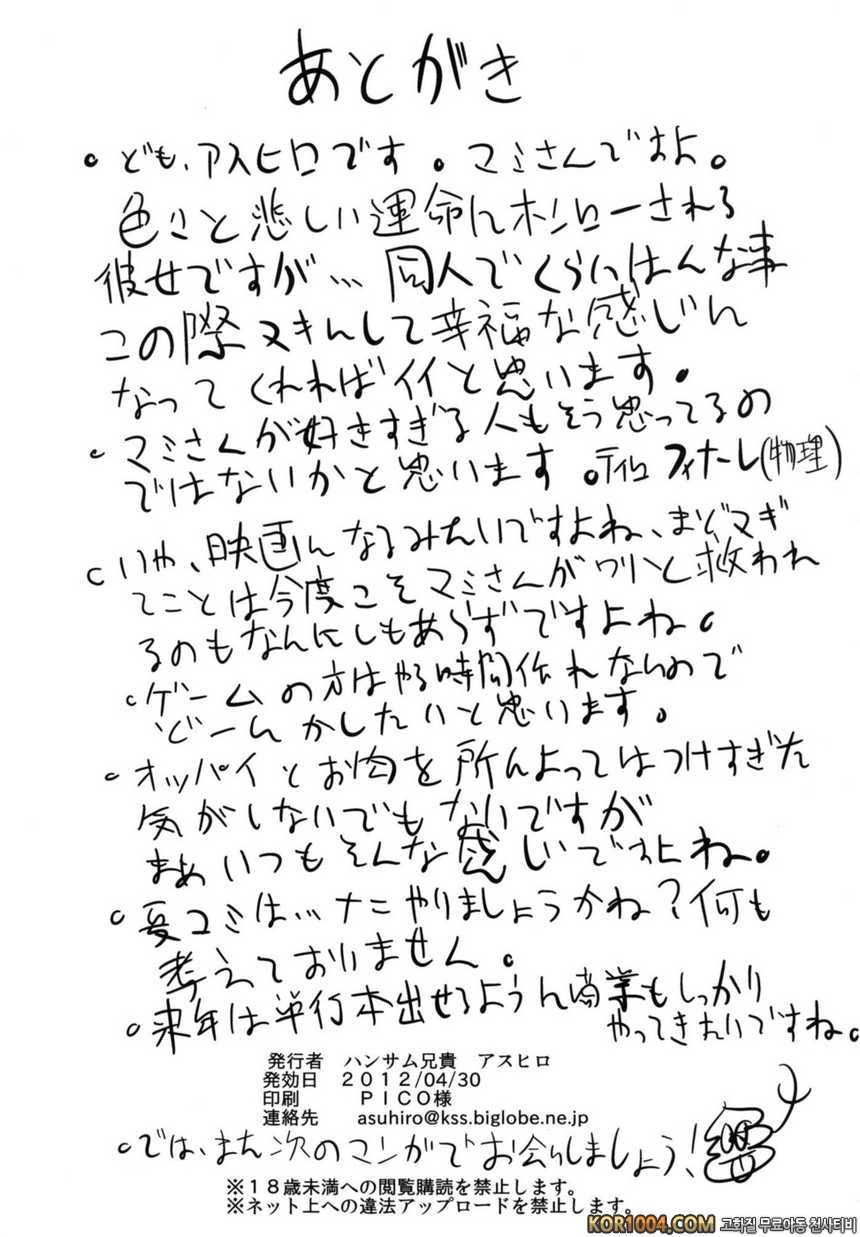 あとがき
。ども、アスヒロです。マミさんですよ。
色々と悲しい運命にホンローされる
彼女ですが…同人でくらいはんな事
この際ヌキんして幸福な感じに
なってくれればイイと思います。
。マミさんが好きすぎる人もそう思ってるの
ではないかと思います。ティロフィナーレ(物理)
。いや、映画になるみたいですよね、まどマギ
てことは今度こそマミさんがワリと救われ
るのもなんにしもあらずですよね。
。ゲームの方はやる時間作れないので
どーにかしたいと思います。
。オッパイとお肉を所によってはつけすぎた
気がしないでもないですが
まぁいつもそんな感じですよね。
。夏コミは…ナニやりましょうかね?何も
考えておりません。
。来年は単行本出せるように商業もしっかり
やってきたいですね。
発行者 ハンサム兄貴 アスヒロ
発効日 2012/04/30
印刷 PICO様
連絡先 asuhiro@kss.biglobe.ne.jp
。では、また次のマンガでお会いしましょう!
※18歳未満への閲覧購読を禁止します。
※ネット上への違法アップロードを禁止します。
KOR1004.COM 고화질 무료야동 천사티비